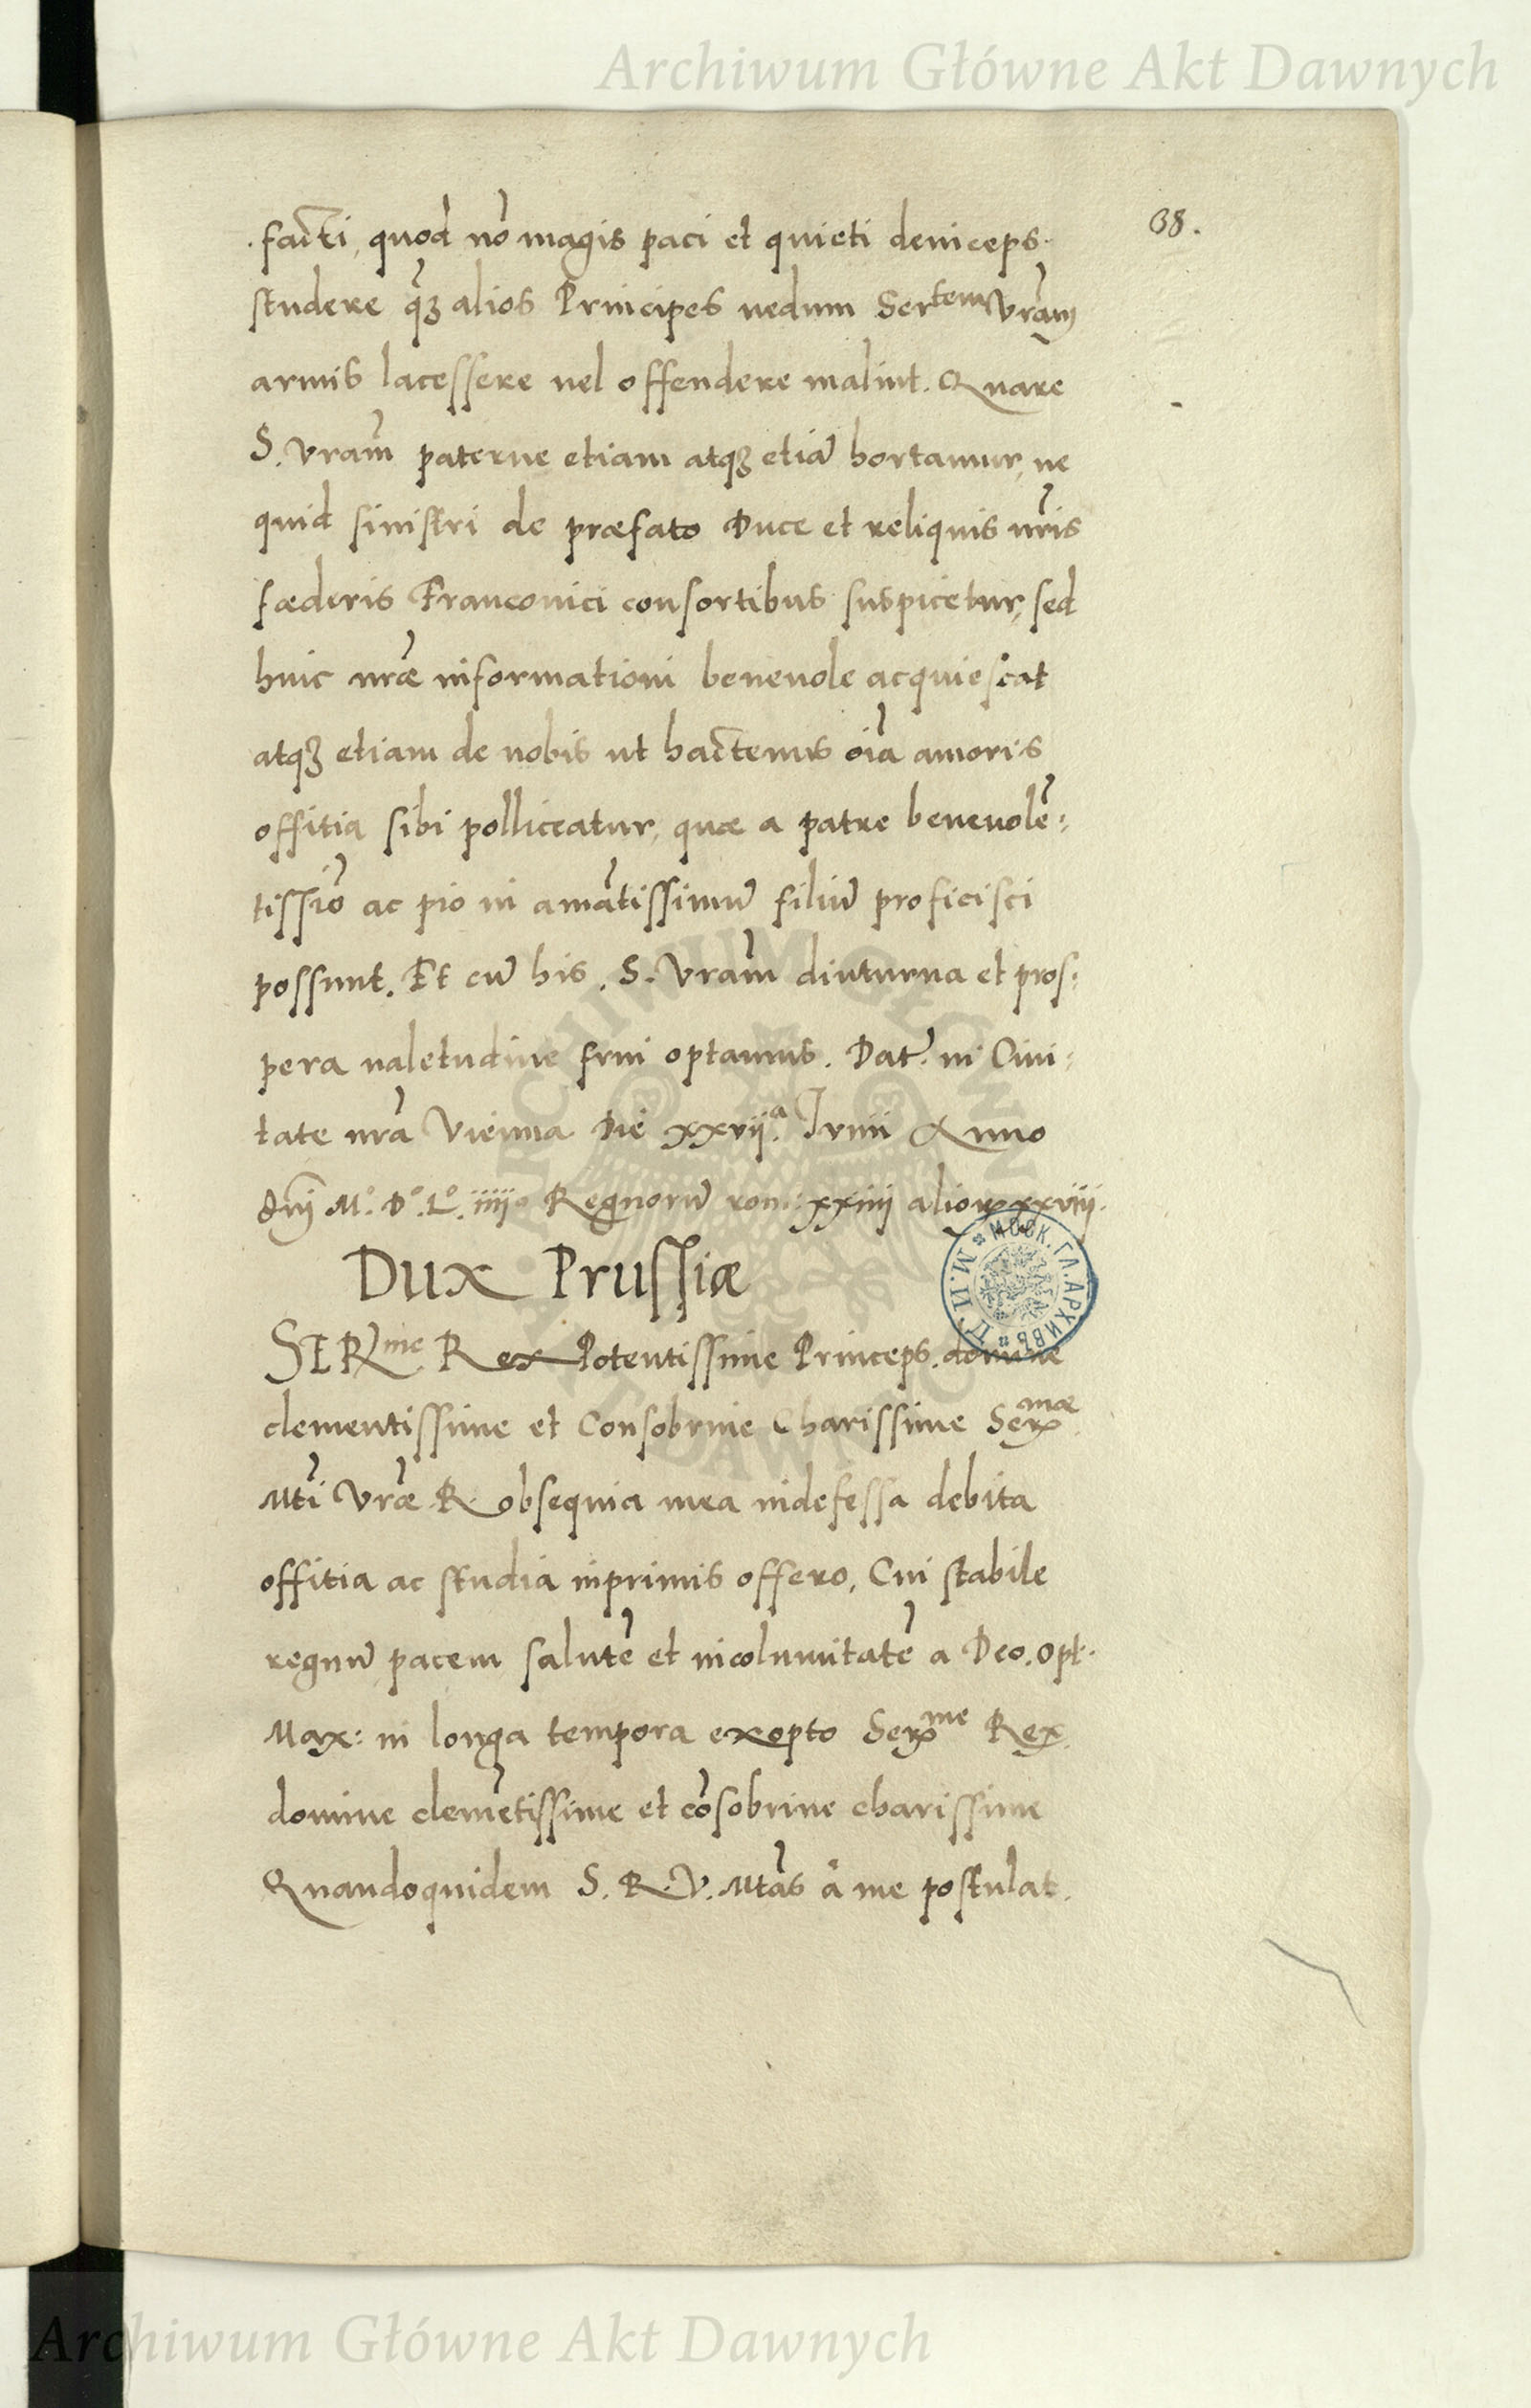 Archiwum Główne Akt Dawnych
38.
facti, quod nō magis paci et quieti deinceps
studere q̃ȝ alios Principes nedum Ser^tem Vrãm
armis lacessere uel offendere malint. Quare
S. Vrãm paterne etiam atqȝ etiā hortamur, ne
quid sinistri de præfato Duce et reliquis nr̃is
fæderis Franconici consortibus suspicetur, sed
huic nr̃æ informationi beneuole acquiescat
atqȝ etiam de nobis ut hactenus oĩa amoris
offitia sibi polliceatur, quæ a patre beneuolē:
tissĩo ac pio in amātissimū filiū proficisci
possunt. Et cū his. S. Vrãm diuturna et pros:
pera ualetudine frui optamus. Dat̃. in Ciui:
tate nr̃a Vienna Die xxvij^a. Junij Anno
dñi M°. D°. L°. iiij° Regnorū rom: xxiiij alior̃ xxviij.
Dux Prussiæ
SER^me Rex Potentissime Princeps. domine
clementissime et Consobrine Charissime Ser^mæ
Mti Vræ R. obsequia mea indefessa debita
offitia ac studia inprimis offero, Cui stabile
regnū pacem salutē et incolumitatē a Deo. Opt.
Max: in longa tempora exopto Ser^me Rex
domine clemētissime et cōsobrine charissime
Quandoquidem S. R. V. Mtas à me postulat.
МОСК. ГЛ. АРХИВЪ
П. И. М.
ARCHIWUM GŁÓWNE AKT DAWNYCH
Archiwum Główne Akt Dawnych